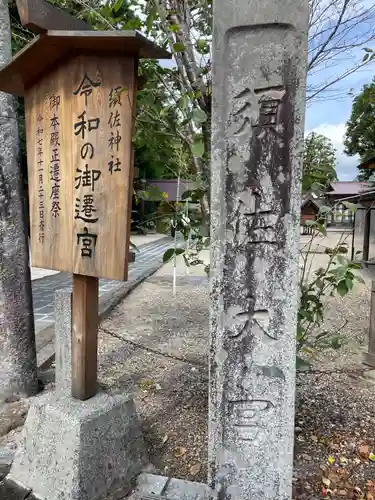 須佐神社
令和の御遷宮
御本殿正遷座祭
令和七年十一月二三日斎行
須佐大宮